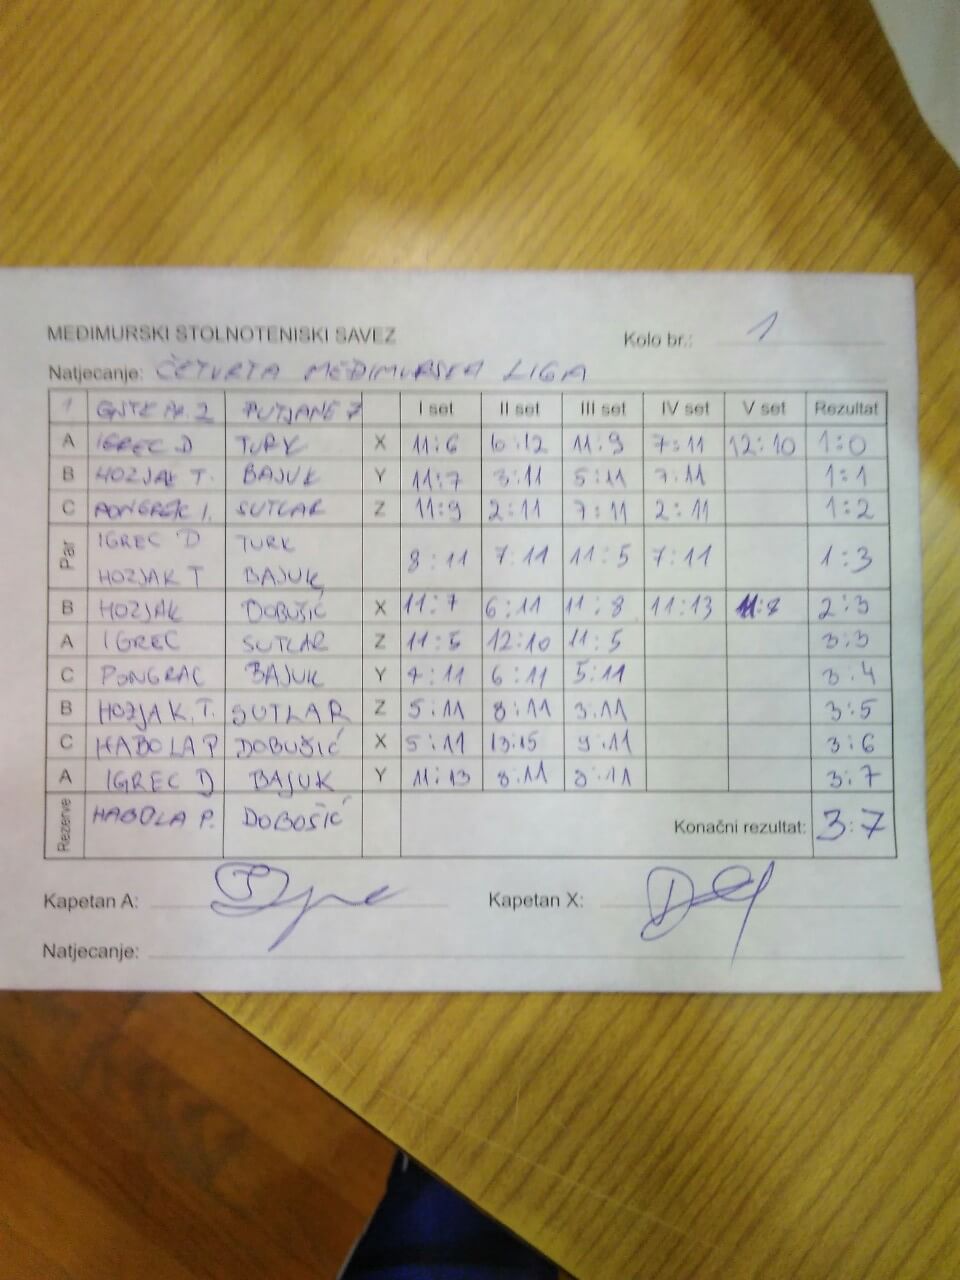 MEĐIMURSKI STOLNOTENISKI SAVEZ
Kolo br.: 1
Natjecanje: ČETVRTA MEĐIMURSKA LIGA
1 I set II set III set IV set V set Rezultat
A IGREC D TURK X 11:6 10:12 11:9 7:11 12:10 1:0
B HOZJAK T. BAJUK Y 11:7 3:11 5:11 7:11 1:1
C PONGRAC I. SUTLAR Z 11:9 2:11 7:11 2:11 1:2
Par IGREC D TURK 8:11 7:11 11:5 7:11 1:3
HOZJAK T BAJUK
B HOZJAK DOBUŠIĆ X 11:7 6:11 11:8 11:13 11:8 2:3
A IGREC SUTLAR Z 11:5 12:10 11:5 3:3
C PONGRAC BAJUK Y 4:11 6:11 5:11 3:4
B HOZJAK.T. SUTLAR Z 5:11 8:11 3:11 3:5
C HABOLA P DOBUŠIĆ X 5:11 13:15 9:11 3:6
A IGREC D BAJUK Y 11:13 8:11 8:11 3:7
Rezerve HABOLA P. DOBOŠIĆ Konačni rezultat: 3:7
Kapetan A: Kapetan X:
Natjecanje: